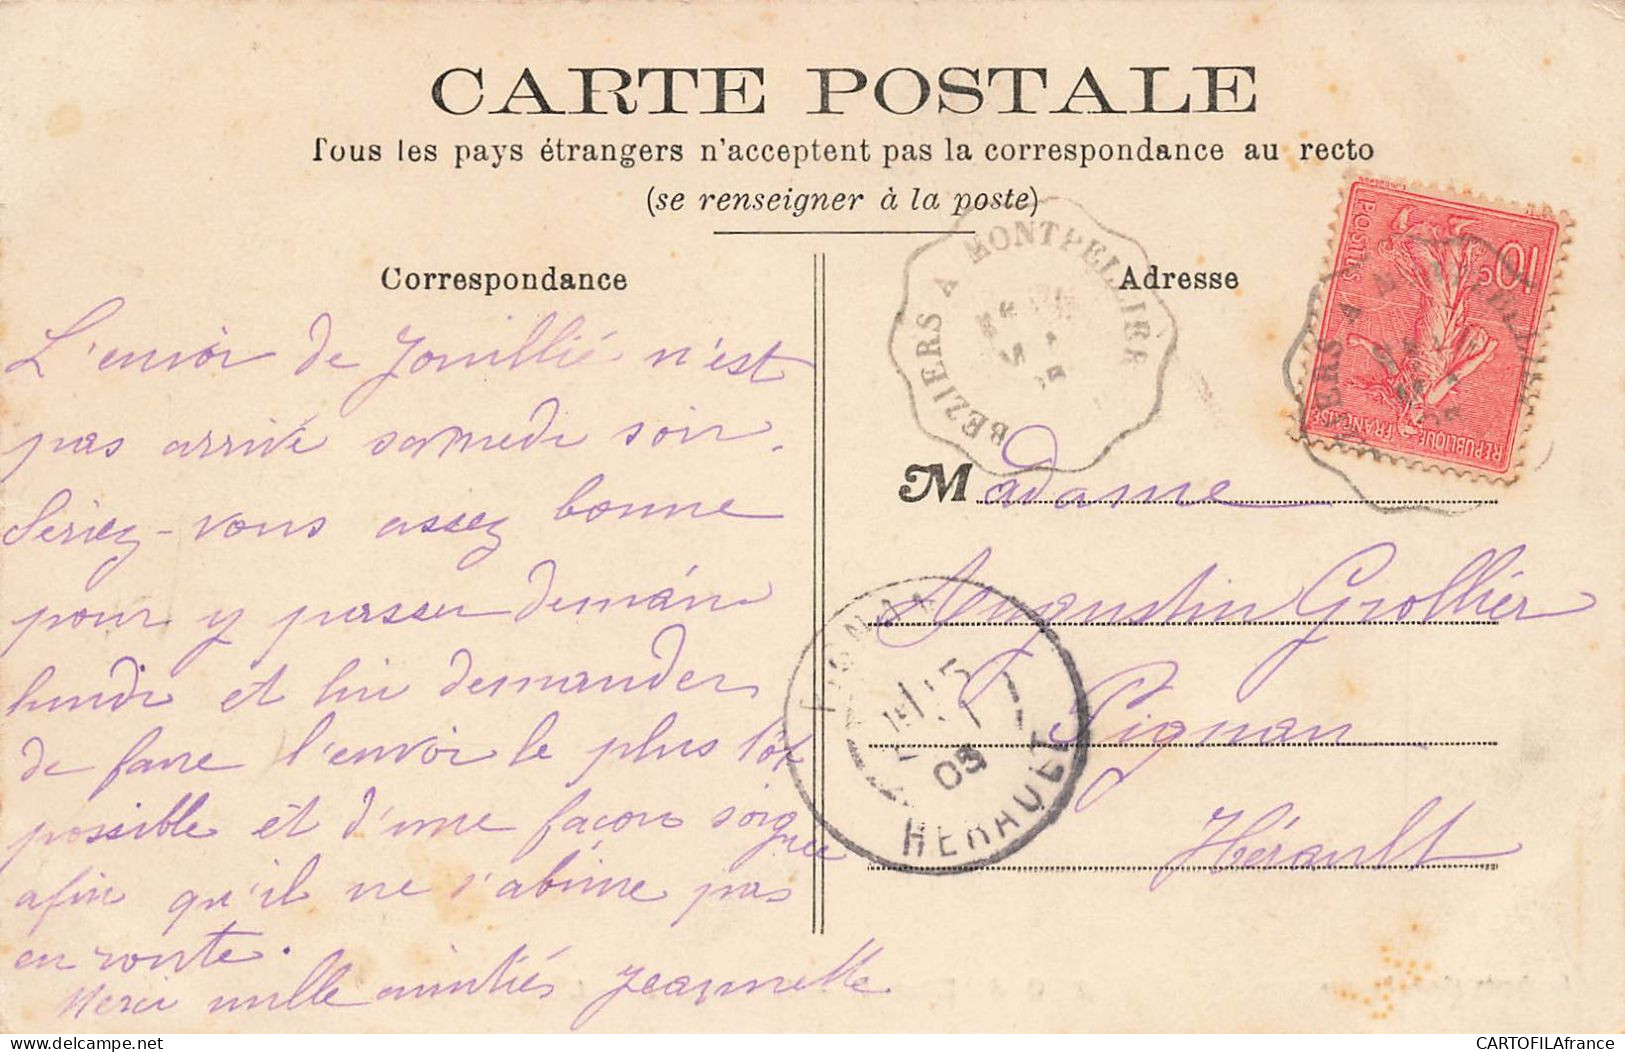 CARTE POSTALE
Tous les pays étrangers n'acceptent pas la correspondance au recto
(se renseigner à la poste)
Correspondance
L'envoi de Jouillié n'est
pas arrivé samedi soir.
Seriez-vous assez bonne
pour y passer demain
lundi et lui demander
de faire l'envoi le plus tôt
possible et d'une façon soignée
afin qu'il ne s'abime pas
en route.
Merci mille amitiés Jeannette
Adresse
Madame
Augustin Grollier
Pignan
Hérault
BEZIERS A MONTPELLIER
10c
POSTES
REPUBLIQUE FRANÇAISE
ERS A
PIGNAN
HERAULT
CARTOFILAfrance